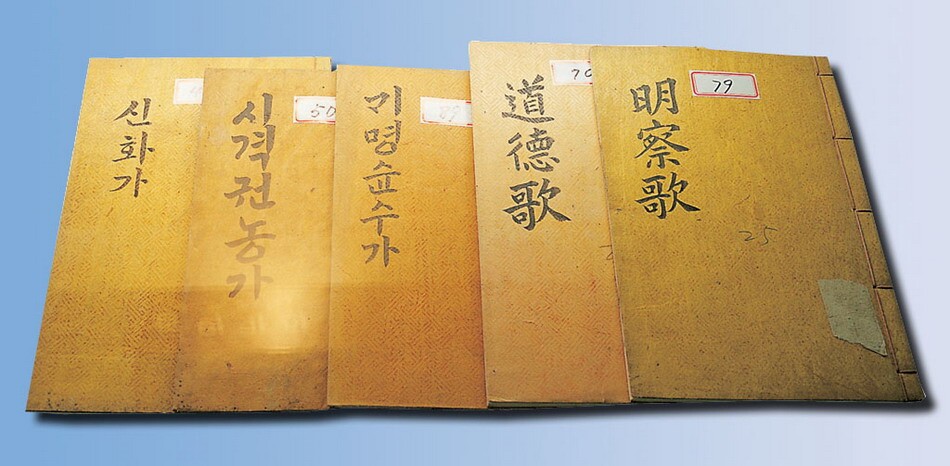 신화가
시격권농가
50
기명슌수가
道德歌
明察歌
79
25